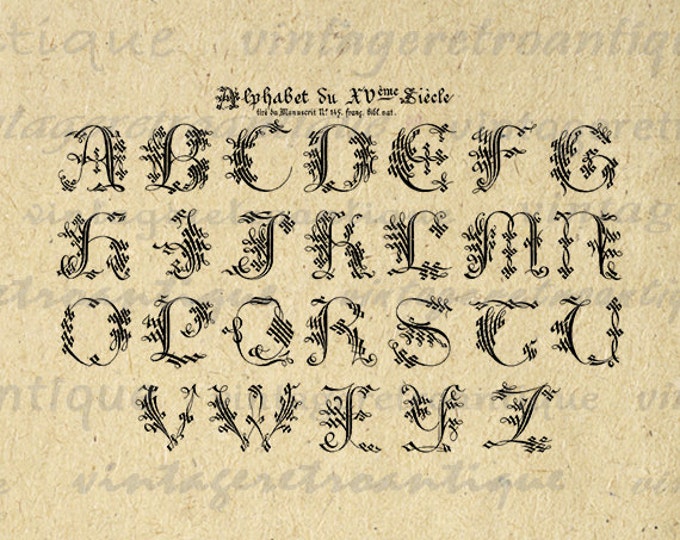 Alphabet du XVème Siècle
tiré du Manuscrit Nº 145. franç. bibl. nat.
A B C D E F G
H I J K L M N
O P Q R S T U
V W X Y Z
vintageretroantique